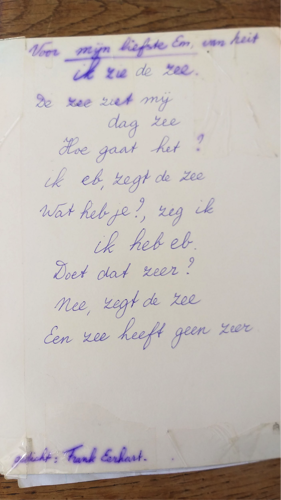 Voor mijn liefste Em, van heit
ik zie de zee.
De zee ziet mij
dag zee
Hoe gaat het?
ik eb, zegt de zee
Wat heb je?, zeg ik
ik heb eb.
Doet dat zeer?
Nee, zegt de zee
Een zee heeft geen zeer
gedicht: Frank Eerhart.